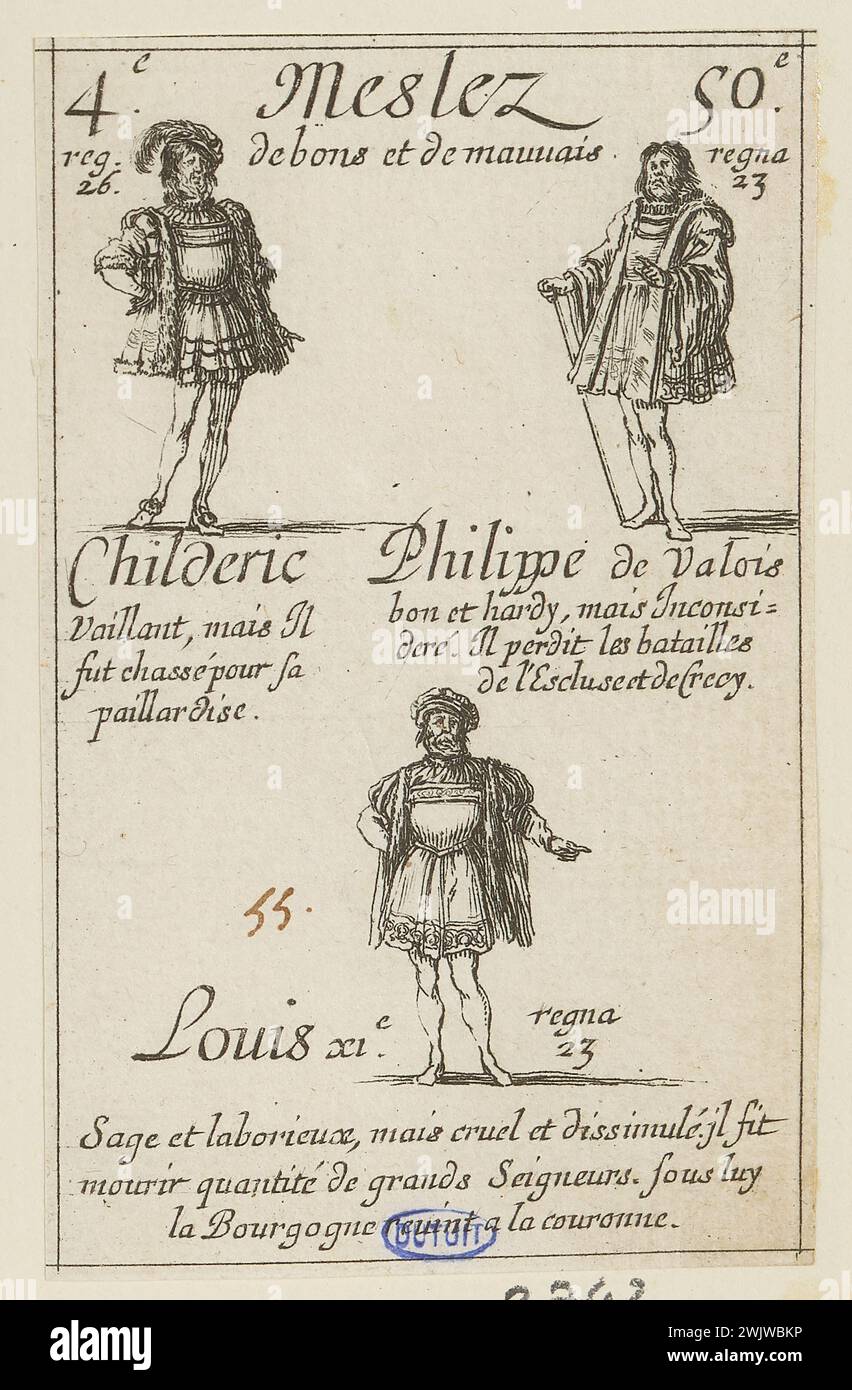 4.e Meslez 50.e
reg. 26. de bons et de mauuais. regna 23
Childeric
Vaillant, mais Il
fut chassé pour sa
paillardise.
Philippe de Valois
bon et hardy, mais Inconsi=
deré. Il perdit les batailles
de l'Escluse et de Crecy.
55.
Louis xi.e regna 23
Sage et laborieux, mais cruel et dissimulé. jl fit
mourir quantité de grands Seigneurs. sous luy
la Bourgogne reuint a la couronne.
DUTUIT
alamy
Image ID: 2WJWBKP
www.alamy.com